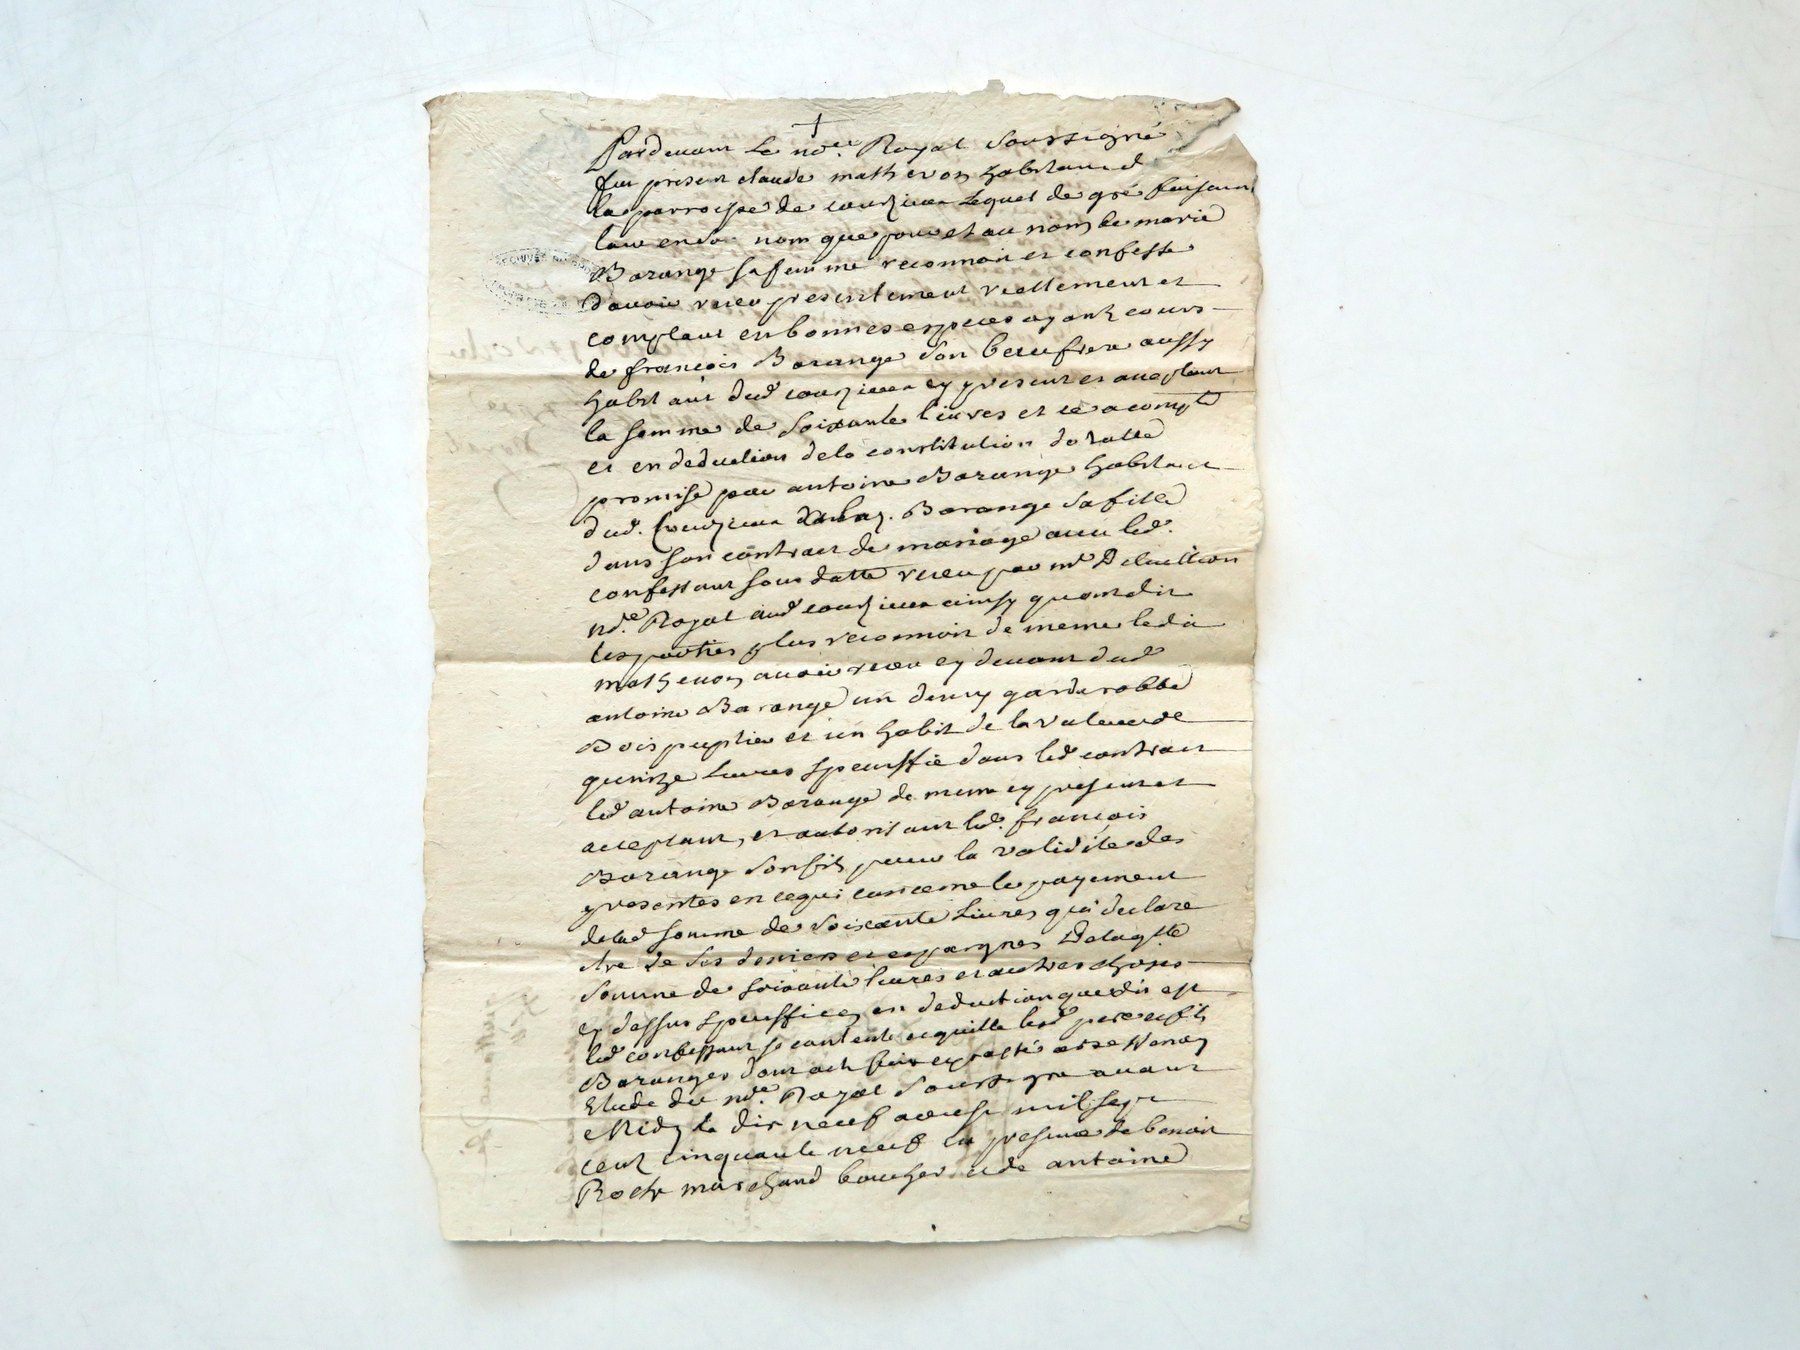 Pardevant Le no.re Royal Soussigné
fut present claude matheron habitant d
la parroisse de courzieu Lequel de gré faisant
tant en son nom que pour et au nom de marie
Barange sa femme reconnoit et confesse
d'avoir receu presentement reellement et
comptant en bonnes especes ayant cours
de françois Barange son beaufrere aussy
habitant dud courzieu cy present et acceptant
la somme de soixante livres et ce a compte
et en deduction de la constitution dotalle
promise par antoine Barange habitant
dud. Courzieu Barange sa fille
dans son contract de mariage avec led.
confessant sous datte receu par me
no.re Royal aud courzieu ainsy quont dit
les parties plus reconnoit de meme ledit
matheron avoir receu cy devant dud
antoine Barange un demy garderobbe
Bois peuplier et un habit de la valleur de
quinze livres speciffié dans led contract
led antoine Barange de meme cy present et
acceptant, et autorisant led. françois
Barange son fils pour la validité des
presentes en ce qui concerne le payement
de lad somme de soixante livres qu'il declare
etre de ses deniers et epargnes De laqlle
somme de soixante livres et autres choses
cy dessus speciffiees en deduction que dit est
led confessant se contente et quitte lesd pere et fils
Baranges dont acte fait et passé a
Etude du no.re Royal soussigné avant
Midy le dix neuf aoust mil sept
cent cinquante neuf en presence de benoit
Roche marchand boucher et de antoine